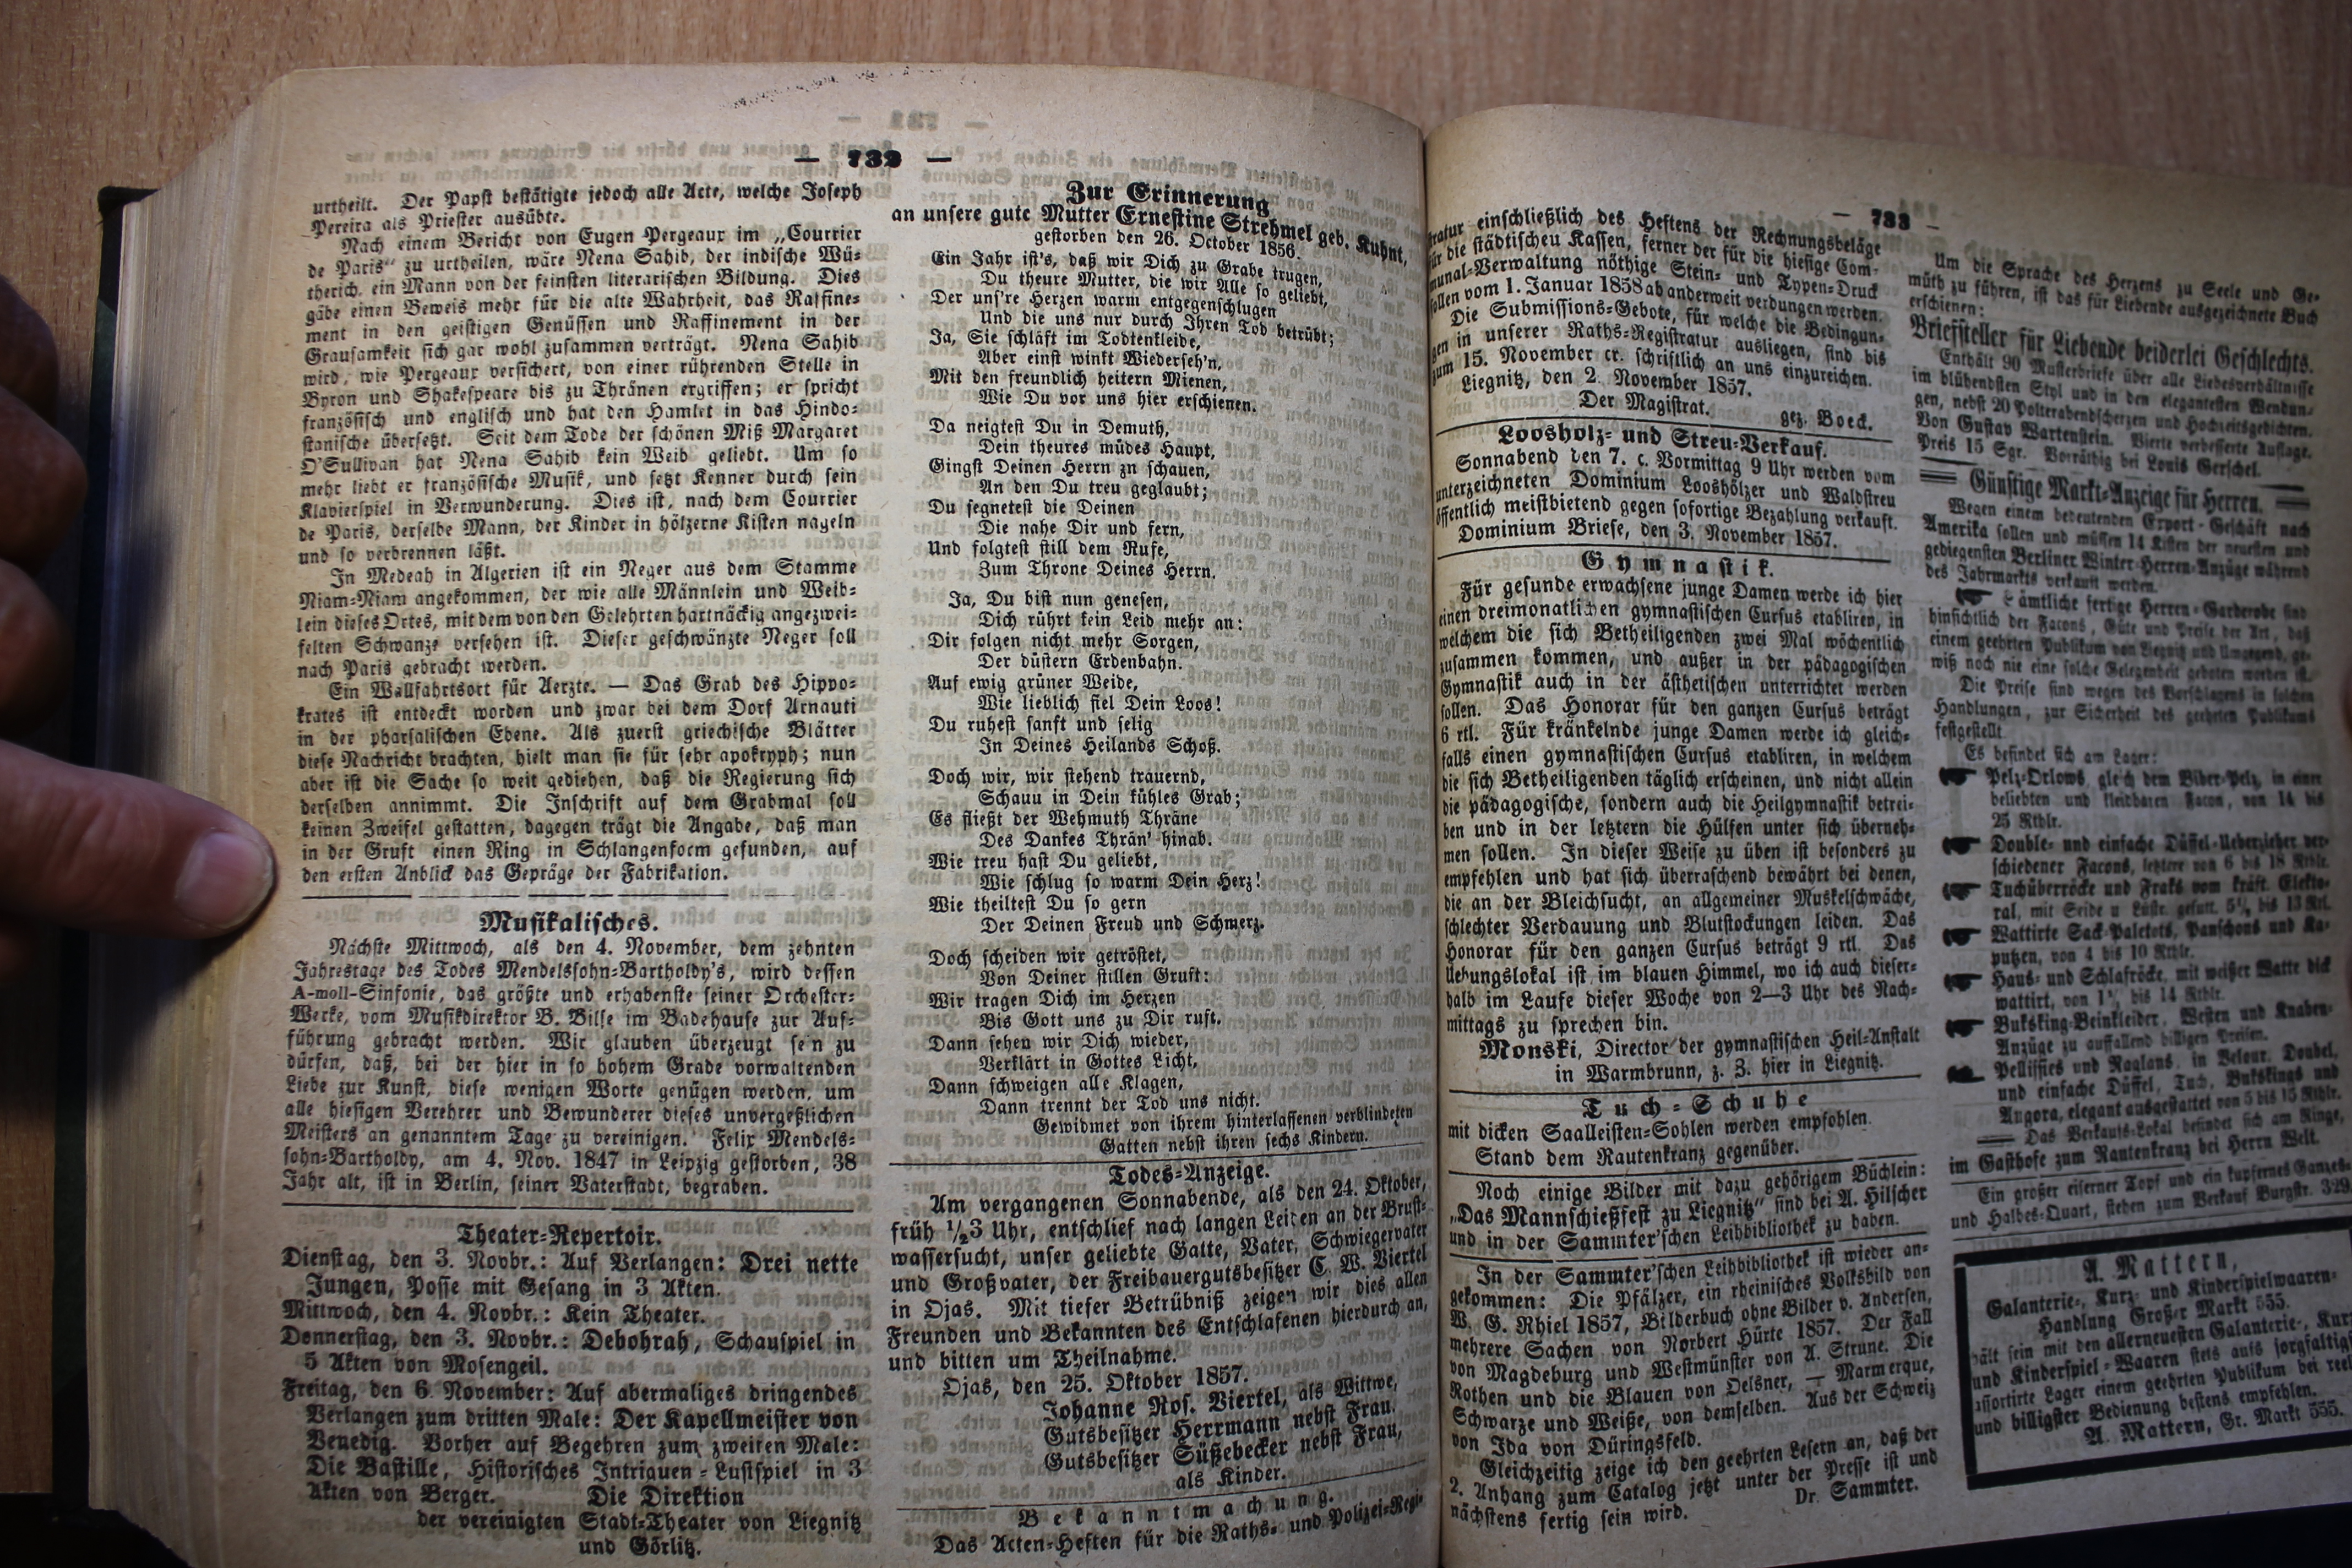 — 732 —
urtheilt. Der Papst bestätigte jedoch alle Acte, welche Joseph
Pereira als Priester ausübte.
Nach einem Bericht von Eugen Pergeaux im „Courrier
de Paris“ zu urtheilen, wäre Nena Sahib, der indische Wü-
therich, ein Mann von der feinsten literarischen Bildung. Dies
gäbe einen Beweis mehr für die alte Wahrheit, das Raffine-
ment in den geistigen Genüssen und Raffinement in der
Grausamkeit sich gar wohl zusammen verträgt. Nena Sahib
wird, wie Pergeaux versichert, von einer rührenden Stelle in
Byron und Shakespeare bis zu Thränen ergriffen; er spricht
französisch und englisch und hat den Hamlet in das Hindo-
stanische übersetzt. Seit dem Tode der schönen Miß Margaret
O'Sullivan hat Nena Sahib kein Weib geliebt. Um so
mehr liebt er französische Musik, und setzt Kenner durch sein
Klavierspiel in Verwunderung. Dies ist, nach dem Courrier
de Paris, derselbe Mann, der Kinder in hölzerne Kisten nageln
und so verbrennen läßt.
In Medeah in Algerien ist ein Neger aus dem Stamme
Niam-Niam angekommen, der wie alle Männlein und Weib-
lein dieses Ortes, mit dem von den Gelehrten hartnäckig angezwei-
felten Schwanze versehen ist. Dieser geschwänzte Neger soll
nach Paris gebracht werden.
Ein Wallfahrtsort für Aerzte. — Das Grab des Hippo-
krates ist entdeckt worden und zwar bei dem Dorf Arnauti
in der pharsalischen Ebene. Als zuerst griechische Blätter
diese Nachricht brachten, hielt man sie für sehr apokryph; nun
aber ist die Sache so weit gediehen, daß die Regierung sich
derselben annimmt. Die Inschrift auf dem Grabmal soll
keinen Zweifel gestatten, dagegen trägt die Angabe, daß man
in der Gruft einen Ring in Schlangenform gefunden, auf
den ersten Anblick das Gepräge der Fabrikation.
Musikalisches.
Nächste Mittwoch, als den 4. November, dem zehnten
Jahrestage des Todes Mendelssohn-Bartholdy's, wird dessen
A-moll-Sinfonie, das größte und erhabenste seiner Orchester-
Werke, vom Musikdirektor B. Bilse im Badehause zur Auf-
führung gebracht werden. Wir glauben überzeugt sein zu
dürfen, daß, bei der hier in so hohem Grade vorwaltenden
Liebe zur Kunst, diese wenigen Worte genügen werden, um
alle hiesigen Verehrer und Bewunderer dieses unvergeßlichen
Meisters an genanntem Tage zu vereinigen. Felix Mendels-
sohn-Bartholdy, am 4. Nov. 1847 in Leipzig gestorben, 38
Jahr alt, ist in Berlin, seiner Vaterstadt, begraben.
Theater-Repertoir.
Dienstag, den 3. Novbr.: Auf Verlangen: Drei nette
Jungen, Posse mit Gesang in 3 Akten.
Mittwoch, den 4. Novbr.: Kein Theater.
Donnerstag, den 3. Novbr.: Debohrah, Schauspiel in
5 Akten von Mosengeil.
Freitag, den 6. November: Auf abermaliges dringendes
Verlangen zum dritten Male: Der Kapellmeister von
Venedig. Vorher auf Begehren zum zweiten Male:
Die Bastille, Historisches Intriguen-Lustspiel in 3
Akten von Berger. Die Direktion
der vereinigten Stadt-Theater von Liegnitz
und Görlitz.
Zur Erinnerung
an unsere gute Mutter Ernestine Strehmel geb. Kuhnt,
gestorben den 26. October 1856.
Ein Jahr ist's, daß wir Dich zu Grabe trugen,
Du theure Mutter, die wir Alle so geliebt,
Der uns're Herzen warm entgegenschlugen
Und die uns nur durch Ihren Tod betrübt;
Ja, Sie schläft im Todtenkleide,
Aber einst winkt Wiederseh'n,
Mit den freundlich heitern Mienen,
Wie Du vor uns hier erschienen.
Da neigtest Du in Demuth,
Dein theures müdes Haupt,
Gingst Deinen Herrn zu schauen,
An den Du treu geglaubt;
Du segnetest die Deinen
Die nahe Dir und fern,
Und folgtest still dem Rufe,
Zum Throne Deines Herrn.
Ja, Du bist nun genesen,
Dich rührt kein Leid mehr an:
Dir folgen nicht mehr Sorgen,
Der düstern Erdenbahn.
Auf ewig grüner Weide,
Wie lieblich fiel Dein Loos!
Du ruhest sanft und selig
In Deines Heilands Schoß.
Doch wir, wir stehend trauernd,
Schauu in Dein kühles Grab;
Es fließt der Wehmuth Thräne
Des Dankes Thrän' hinab.
Wie treu hast Du geliebt,
Wie schlug so warm Dein Herz!
Wie theiltest Du so gern
Der Deinen Freud und Schmerz.
Doch scheiden wir getröstet,
Von Deiner stillen Gruft:
Wir tragen Dich im Herzen
Bis Gott uns zu Dir ruft.
Dann sehen wir Dich wieder,
Verklärt in Gottes Licht,
Dann schweigen alle Klagen,
Dann trennt der Tod uns nicht.
Gewidmet von ihrem hinterlassenen verblindeten
Gatten nebst ihren sechs Kindern.
Todes-Anzeige.
Am vergangenen Sonnabende, als den 24. Oktober,
früh 1/23 Uhr, entschlief nach langen Leiden an der Brust-
wassersucht, unser geliebte Gatte, Vater, Schwiegervater
und Großvater, der Freibauergutsbesitzer C. W. Viertel
in Ojas. Mit tiefer Betrübniß zeigen wir dies allen
Freunden und Bekannten des Entschlafenen hierdurch an,
und bitten um Theilnahme.
Ojas, den 25. Oktober 1857.
Johanne Ros. Viertel, als Wittwe,
Gutsbesitzer Herrmann nebst Frau.
Gutsbesitzer Süßebecker nebst Frau,
als Kinder.
Bekanntmachung.
Das Acten-Heften für die Raths- und Polizei-Regi-
— 733 —
stratur einschließlich des Heftens der Rechnungsbeläge
für die städtischeu Kassen, ferner der für die hiesige Com-
munal-Verwaltung nöthige Stein- und Typen-Druck
sollen vom 1. Januar 1858 ab anderweit verdungen werden.
Die Submissions-Gebote, für welche die Bedingun-
gen in unserer Raths-Registratur ausliegen, sind bis
zum 15. November cr. schriftlich an uns einzureichen.
Liegnitz, den 2. November 1857.
Der Magistrat.
gez. Boeck.
Loosholz- und Streu-Verkauf.
Sonnabend den 7. c. Vormittag 9 Uhr werden vom
unterzeichneten Dominium Looshölzer und Waldstreu
öffentlich meistbietend gegen sofortige Bezahlung verkauft.
Dominium Briese, den 3. November 1857.
Gymnastik.
Für gesunde erwachsene junge Damen werde ich hier
einen dreimonatlichen gymnastischen Cursus etabliren, in
welchem die sich Betheiligenden zwei Mal wöchentlich
zusammen kommen, und außer in der pädagogischen
Gymnastik auch in der ästhetischen unterrichtet werden
sollen. Das Honorar für den ganzen Cursus beträgt
6 rtl. Für kränkelnde junge Damen werde ich gleich-
falls einen gymnastischen Cursus etabliren, in welchem
die sich Betheiligenden täglich erscheinen, und nicht allein
die pädagogische, sondern auch die Heilgymnastik betrei-
ben und in der letztern die Hülfen unter sich überneh-
men sollen. In dieser Weise zu üben ist besonders zu
empfehlen und hat sich überraschend bewährt bei denen,
die an der Bleichsucht, an allgemeiner Muskelschwäche,
schlechter Verdauung und Blutstockungen leiden. Das
Honorar für den ganzen Cursus beträgt 9 rtl. Das
Uebungslokal ist im blauen Himmel, wo ich auch dieser-
halb im Laufe dieser Woche von 2—3 Uhr des Nach-
mittags zu sprechen bin.
Monski, Director der gymnastischen Heil-Anstalt
in Warmbrunn, z. Z. hier in Liegnitz.
Tuch-Schuhe
mit dicken Saalleisten-Sohlen werden empfohlen.
Stand dem Rautenkranz gegenüber.
Noch einige Bilder mit dazu gehörigem Büchlein:
„Das Mannschießfest zu Liegnitz“ sind bei A. Hilscher
und in der Sammter'schen Leihbibliothek zu haben.
In der Sammter'schen Leihbibliothek ist wieder an-
gekommen: Die Pfälzer, ein rheinisches Volksbild von
W. G. Rhiel 1857, Bilderbuch ohne Bilder v. Andersen,
mehrere Sachen von Norbert Hürte 1857. Der Fall
von Magdeburg und Westmünster von A. Strune. Die
Rothen und die Blauen von Oelsner, — Marmerque,
Schwarze und Weiße, von demselben. Aus der Schweiz
von Ida von Düringsfeld.
Gleichzeitig zeige ich den geehrten Lesern an, daß der
2. Anhang zum Catalog jetzt unter der Presse ist und
nächstens fertig sein wird. Dr. Sammter.
Um die Sprache des Herzens zu Seele und Ge-
müth zu führen, ist das für Liebende ausgezeichnete Buch
erschienen:
Briefsteller für Liebende beiderlei Geschlechts.
Enthält 90 Musterbriefe über alle Liebesverhältnisse
im blühendsten Styl und in den elegantesten Wendun-
gen, nebst 20 Polterabendscherzen und Hochzeitsgedichten.
Von Gustav Wartenstein. Vierte verbesserte Auflage.
Preis 15 Sgr. Vorräthig bei Louis Gerschel.
Günstige Markt-Anzeige für Herren.
Wegen einem bedeutenden Export-Geschäft nach
Amerika sollen und müssen 14 Kisten der neuesten und
gediegensten Berliner Winter-Herren-Anzüge während
des Jahrmarkts verkauft werden.
Sämtliche fertige Herren-Garderobe sind
hinsichtlich der Facons, Güte und Preise der Art, daß
einem geehrten Publikum von Liegnitz und Umgegend, ge-
wiß noch nie eine solche Gelegenheit geboten worden ist.
Die Preise sind wegen des Vorschlagens in solchen
Handlungen, zur Sicherheit des geehrten Publikums
festgestellt.
Es befindet sich am Lager:
Pelz-Orlows, gleich dem Biber-Pelz, in einer
beliebten und kleidbaren Facon, von 14 bis
25 Rthlr.
Double- und einfache Düffel-Ueberzieher ver-
schiedener Facons, letztere von 6 bis 18 Rthlr.
Tuchüberröcke und Fraks vom kräft. Elekto-
ral, mit Seide u Lüstr. gefutt. 5½ bis 13 Rtl.
Wattirte Sack-Paletots, Panschons und Ka-
putzen, von 4 bis 10 Rthlr.
Haus- und Schlafröcke, mit weißer Watte dick
wattirt, von 1½ bis 14 Rthlr.
Buksking-Beinkleider, Westen und Knaben-
Anzüge zu auffallend billigen Preisen.
Pellissies und Raglans, in Velour, Doubel,
und einfache Düffel, Tuch, Bukskings und
Angora, elegant ausgestattet von 5 bis 15 Rthlr.
Das Verkaufs-Lokal befindet sich am Ringe,
im Gasthofe zum Rautenkranz bei Herrn Welt.
Ein großer eiserner Topf und ein kupfernes Ganzes-
und Halbes-Quart, stehen zum Verkauf Burgstr. 329.
A. Mattern,
Galanterie-, Kurz- und Kinderspielwaaren-
Handlung Großer Markt 555.
hält sein mit den allerneuesten Galanterie-, Kurz-
und Kinderspiel-Waaren stets aufs sorgfältig
assortirte Lager einem geehrten Publikum bei
und billigster Bedienung bestens empfehlen.
A. Mattern, Gr. Markt 555.